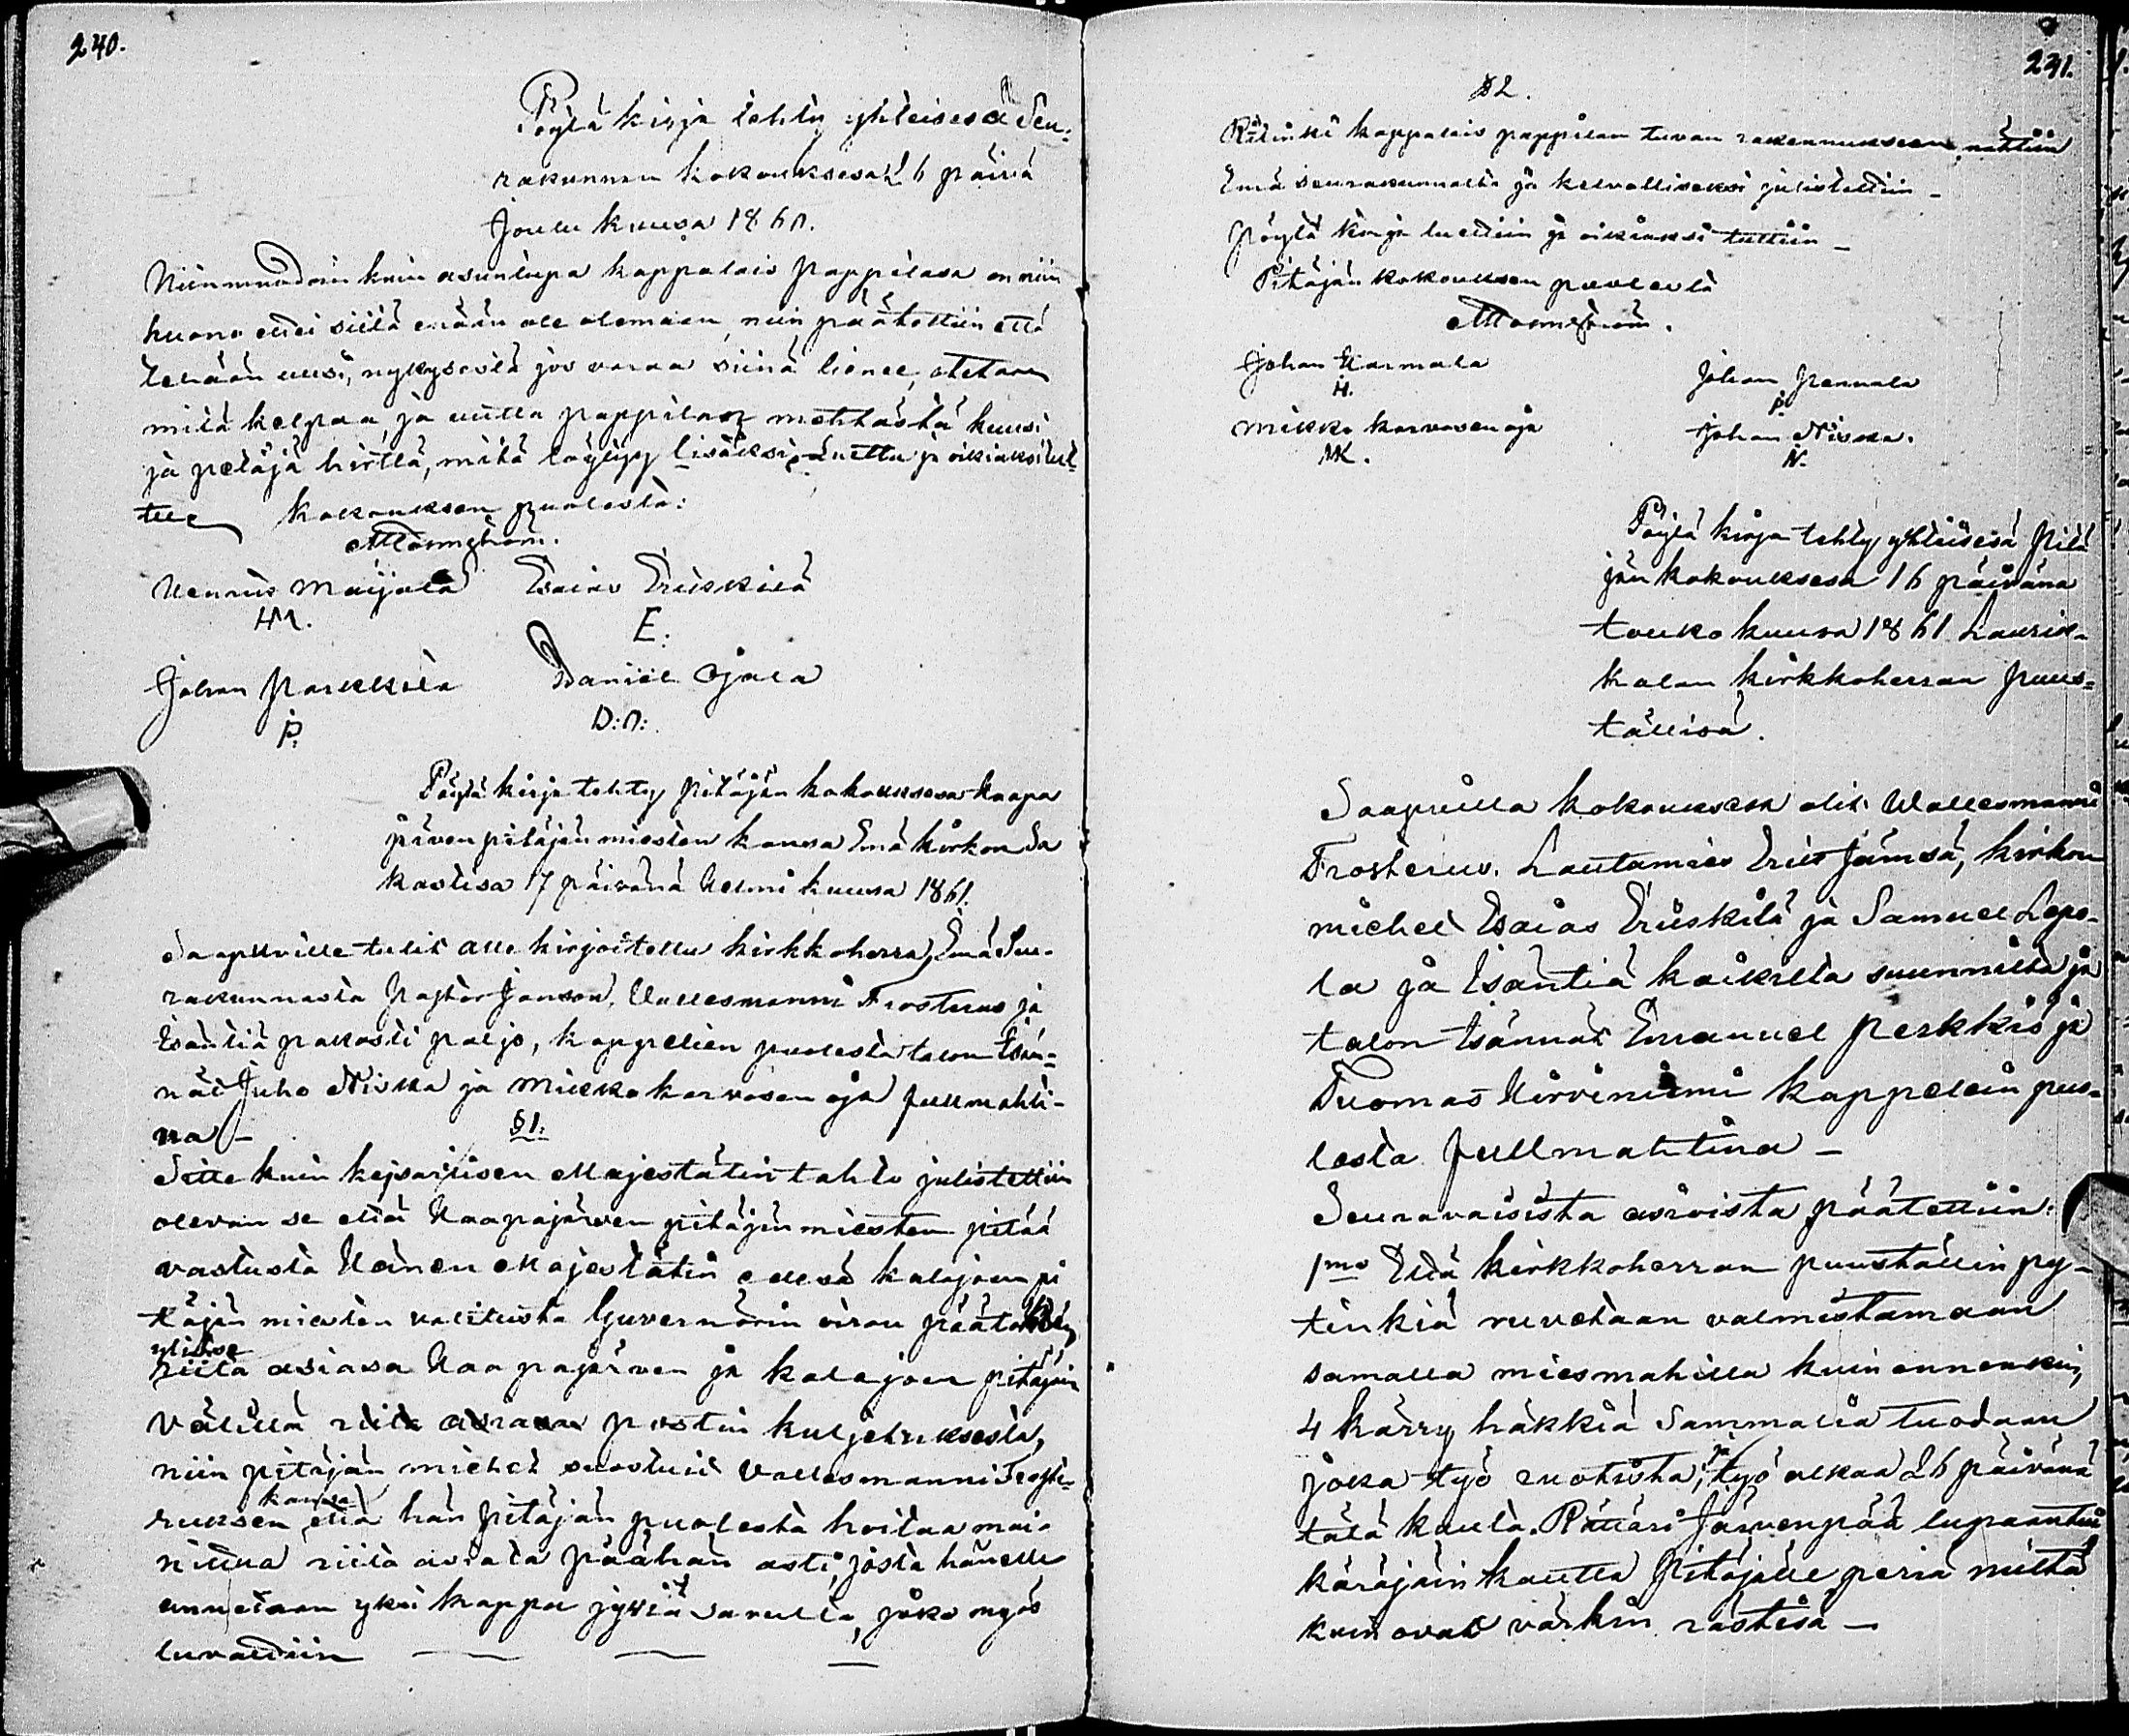 240.
Pöytä kirja tehty yhteisesä Seu-
rakunnan kokouksesa 26 päivä
Joulu kuusa 1860.
Niinmuodoin kuin asuntupa kappalais pappilasa on niin
huono ettei siitä enään ole olemaan, niin päätettiin että
tehään uusi, nykysestä jos varaa siinä lienee, otetaan
mitä kelpaa, ja uutta pappilan mehtästä kuusi
ja petäjä hirttä, mitä löytyy lisäksi, luettu ja oikiaksi tut-
ttu Kokouksen puolesta:
Henrik Maijala Esaias Eriiskilä
HM. E.
Johan Parkkila Daniel Ojala
P. D:O:
Pöytä kirja tehty pitäjän kokouksesa Haapa
järven pitäjän miesten kansa Emä kirkon Sa
kastisa 17 päivänä Helmi kuusa 1861.
Saapuville tulit alle kirjoitettu kirkkoherra, Emä Seu-
rakunnasta Pastor Janson, Vallesmanni Frosterus ja
Isäntiä paljo, kappelien puolesta talon Isän-
nät Juho Niska ja Mickko karvosen oja fullmahti-
na -
§ 1.
Sitte kuin kejsarillisen Majestätin tahto julistettiin
olevan se että Haapajärven pitäjän miesten pitää
vastusta Hänen Majestätin edesä kalajoen pi
täjän miesten valitusta Guvernörin viran päätöksen
ylitse
siitä asiasa Haapajärven ja kalajoen pitäjän
välillä postin kuljetuksesta,
niin pitäjän miehet suostuit Vallesmanni Froste-
kansa
ruksen että hän pitäjän puolesta hoitaa mai-
nittua siitä asiata päähän asti, josta hänelle
annetaan yksi kappa jyviä savulta, joko myös
luvattiin
241.
§ 2.
kappalais pappilan tuvan rakennukseen nähtiin
Emä seurakunnalta ja kelvolliseksi julistettiin -
Pöytä kirja luettiin ja oikiaksi tuttiin -
Pitäjän kokouksen puolesta
Johan Karmala Johan Pennala
H. P.
Mikko karvosen oja Johan Niska.
MK. N.
Pöytä kirja tehty yhteisesä Pitä
jän kokouksesa 16 päivänä
touko kuusa 1861 Haaris-
kalan kirkkoherran Puus-
tällisä.
Saapuilla kokouksesa olit. Wallesmanni
Frosterus. Lautamies Eric Jämsä, kirkon
miehet Esaias Eriiskilä ja Samuel Lepo-
la ja Isäntiä kaikilta suunnilta ja
talon Isännät Emanuel Perkkiö ja
Tuomas Hirviniemi kappelein puo-
lesta fullmahtina -
Seuravaisista asioista päätettiin:
1mo Että kirkkoherran puuställin py-
tinkiä ruvetaan valmistamaan
samalla miesmahilla kuin ennenkin,
4 kärry häkkiä Sammalia tuodaan
ja
joka työ ruotista; työ alkaa 26 päivänä
tätä kuuta. Räätäri Järvenpää lupaantui
käräjäin kautta Pitäjälle periä niiltä
kuin ovat värkin rästisä -